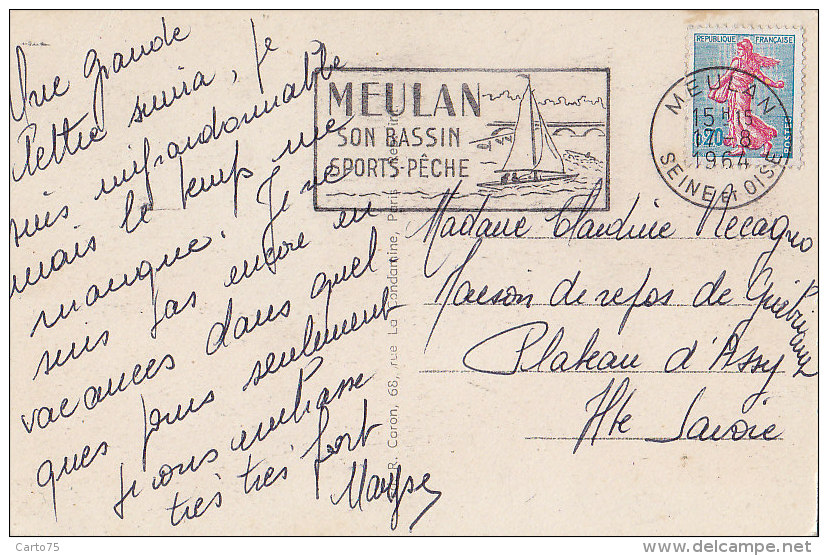 Une grande
lettre suivra, je
suis impardonnable
mais le temps me
manque. Je ne
suis pas encore en
vacances dans quel
ques jours seulement
Je vous embrasse
très très fort
Maryse
MEULAN
SON BASSIN
SPORTS-PÊCHE
REPUBLIQUE FRANÇAISE
0,20
POSTES
MEULAN
15 H 15
17-8
1964
SEINE ET OISE
Madame Claudine
Maison de repos de
Plateau d'Assy
Hte Savoie
R. Caron, 68, rue La Condamine, Paris
Carto75
delcampe.net